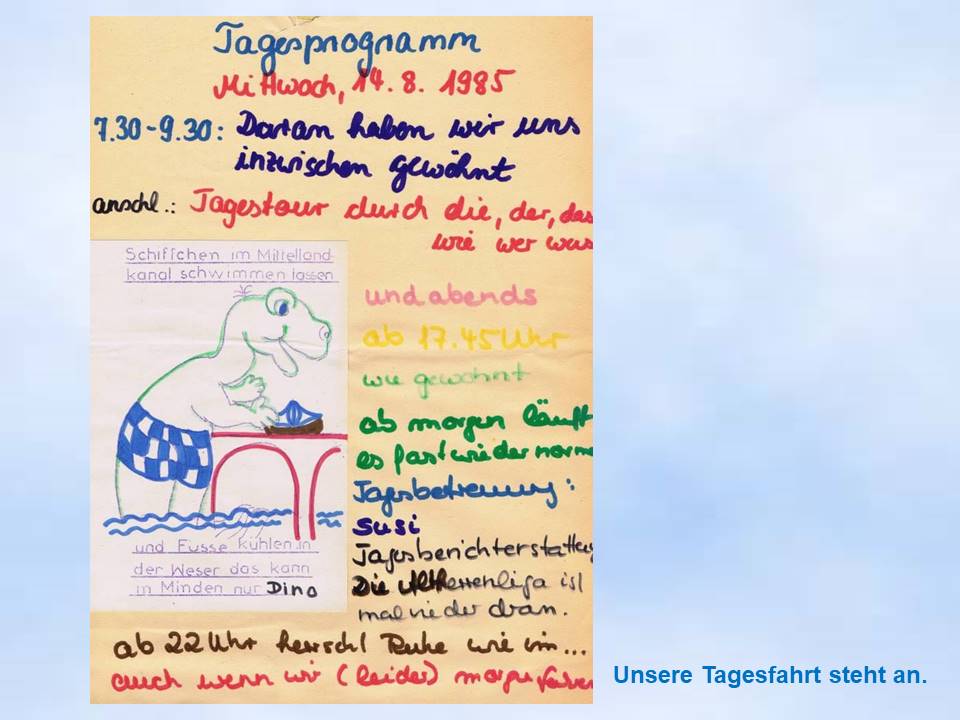 Tagesprogramm
Mittwoch, 14. 8. 1985
7.30-9.30: Daran haben wir uns
inzwischen gewöhnt
anschl.: Tagestour durch die, der, das
wie wer was
Schiffchen im Mittelland-
kanal schwimmen lassen
und Füsse kühlen in
der Weser das kann
in Minden nur Dino
und abends
ab 17.45 Uhr
wie gewohnt
ab morgen läuft
es fast wieder norma
Tagesbetreuung:
Susi
Tagesberichterstattung
Die Altherrenliga ist
mal wieder dran.
ab 22 Uhr herrscht Ruhe wie im...
auch wenn wir (leider) morgen fahren
Unsere Tagesfahrt steht an.